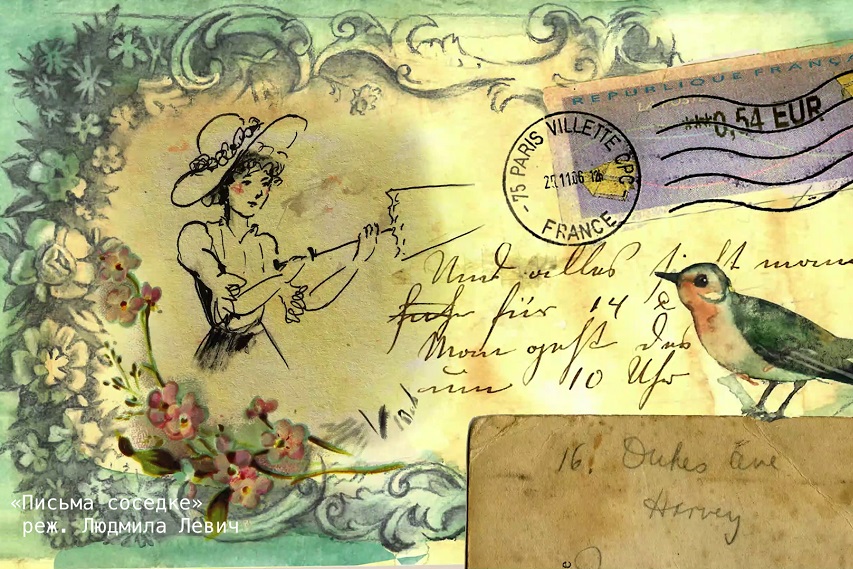 REPUBLIQUE FRANÇA
LA POSTE
***0,54 EUR
75 PARIS VILLETTE CPC
27.11.06
FRANCE
Und alles
für 14
Man geht des
um 10 Uhr
16. Dukes Ave
Harvey
«Письма соседке»
реж. Людмила Левич